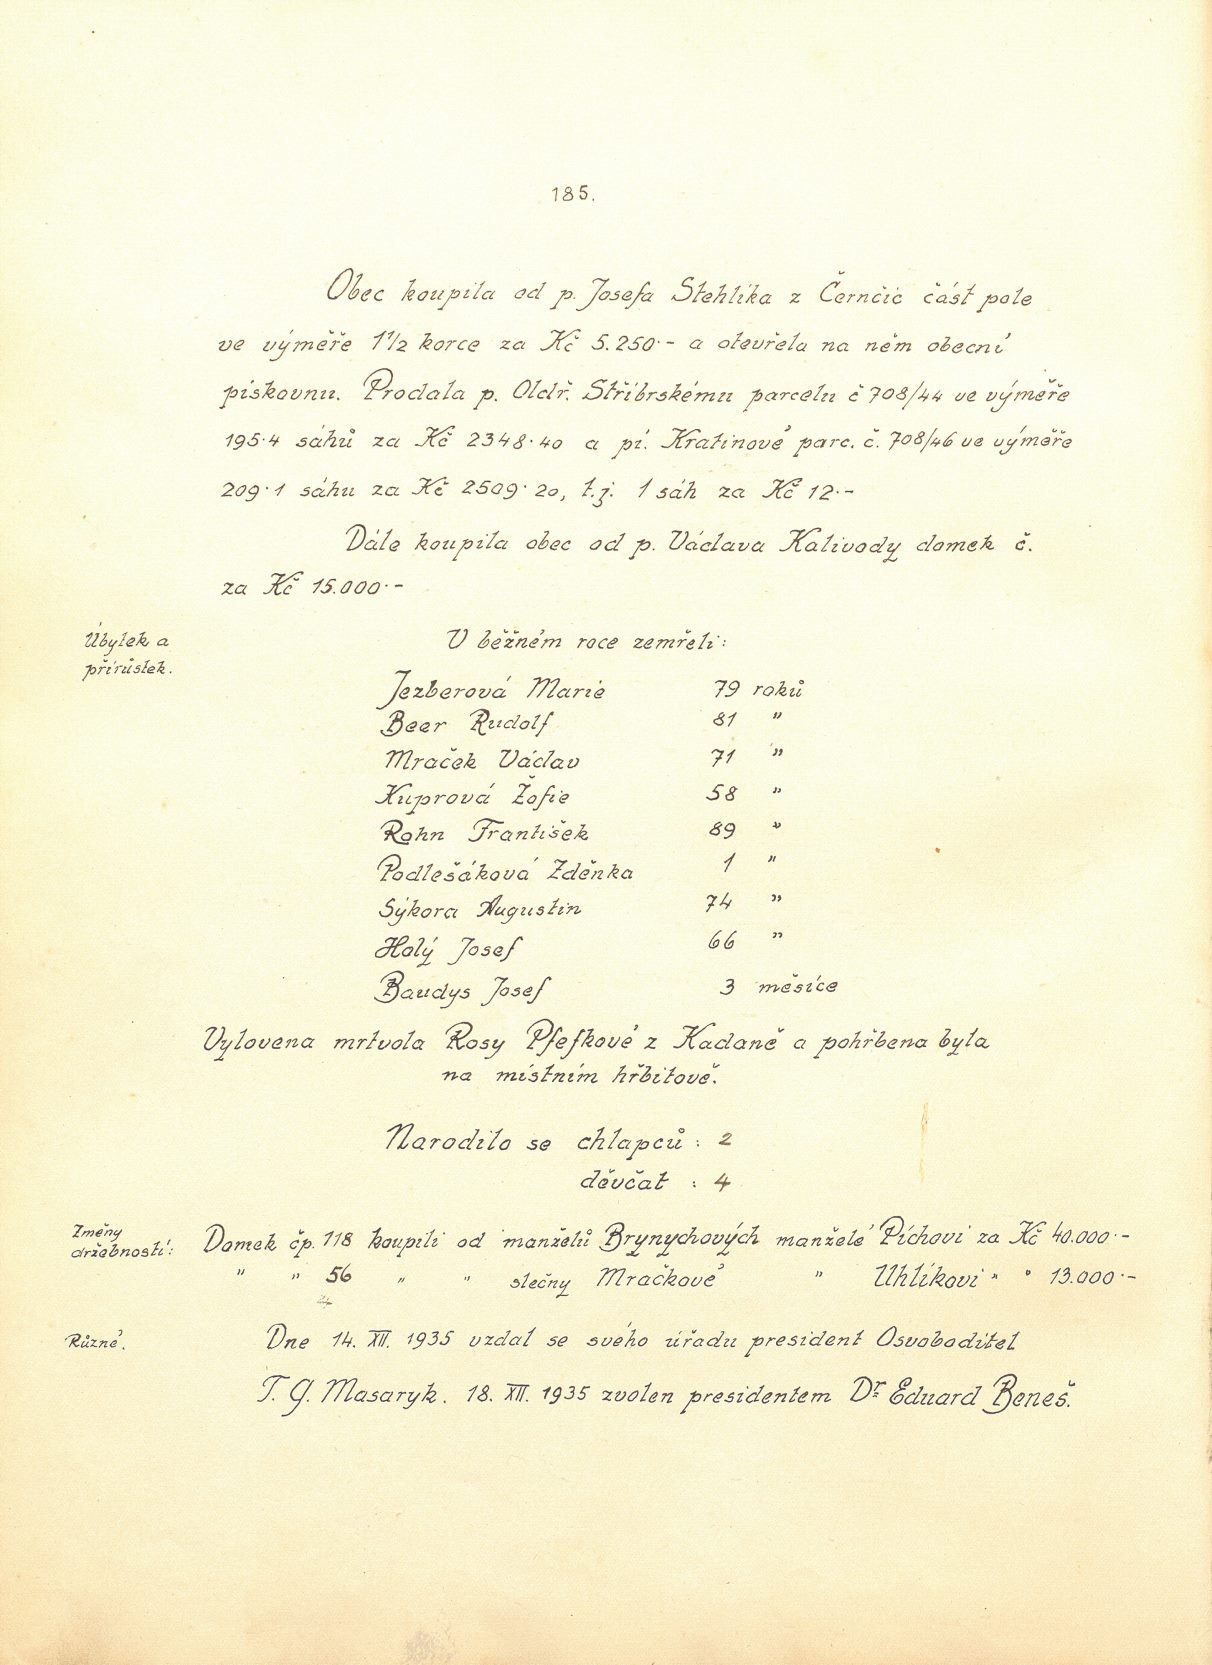 185.
Obec koupila od p. Josefa Stehlíka z Černčic část pole
ve výměře 1 1/2 korce za Kč 5.250·- a otevřela na něm obecní
pískovnu. Prodala p. Oldř. Stříbrskému parcelu č 708/44 ve výměře
195·4 sáhů za Kč 2348·40 a pí. Kratinové parc. č. 708/46 ve výměře
209·1 sáhu za Kč 2509·20, t.j. 1 sáh za Kč 12·-
Dále koupila obec od p. Václava Kalivody domek č.
za Kč 15.000·-
Úbytek a
přírůstek.
V běžném roce zemřeli:
Jezberová Marie 79 roků
Beer Rudolf 81 "
Mraček Václav 71 "
Kuprová Žofie 58 "
Rohn František 89 "
Podlešáková Zděnka 1 "
Sýkora Augustin 74 "
Holý Josef 66 "
Baudys Josef 3 měsíce
Vylovena mrtvola Rosy Pfefkové z Kadaně a pohřbena byla
na místním hřbitově.
Narodilo se chlapců : 2
děvčat : 4
Změny
držebností:
Domek čp. 118 koupili od manželů Brynychových manželé Píchovi za Kč 40.000·-
" " 56 " " slečny Mračkové " Uhlíkovi " " 13.000·-
Různé.
Dne 14. XII. 1935 vzdal se svého úřadu president Osvoboditel
T. G. Masaryk. 18. XII. 1935 zvolen presidentem Dr Eduard Beneš.